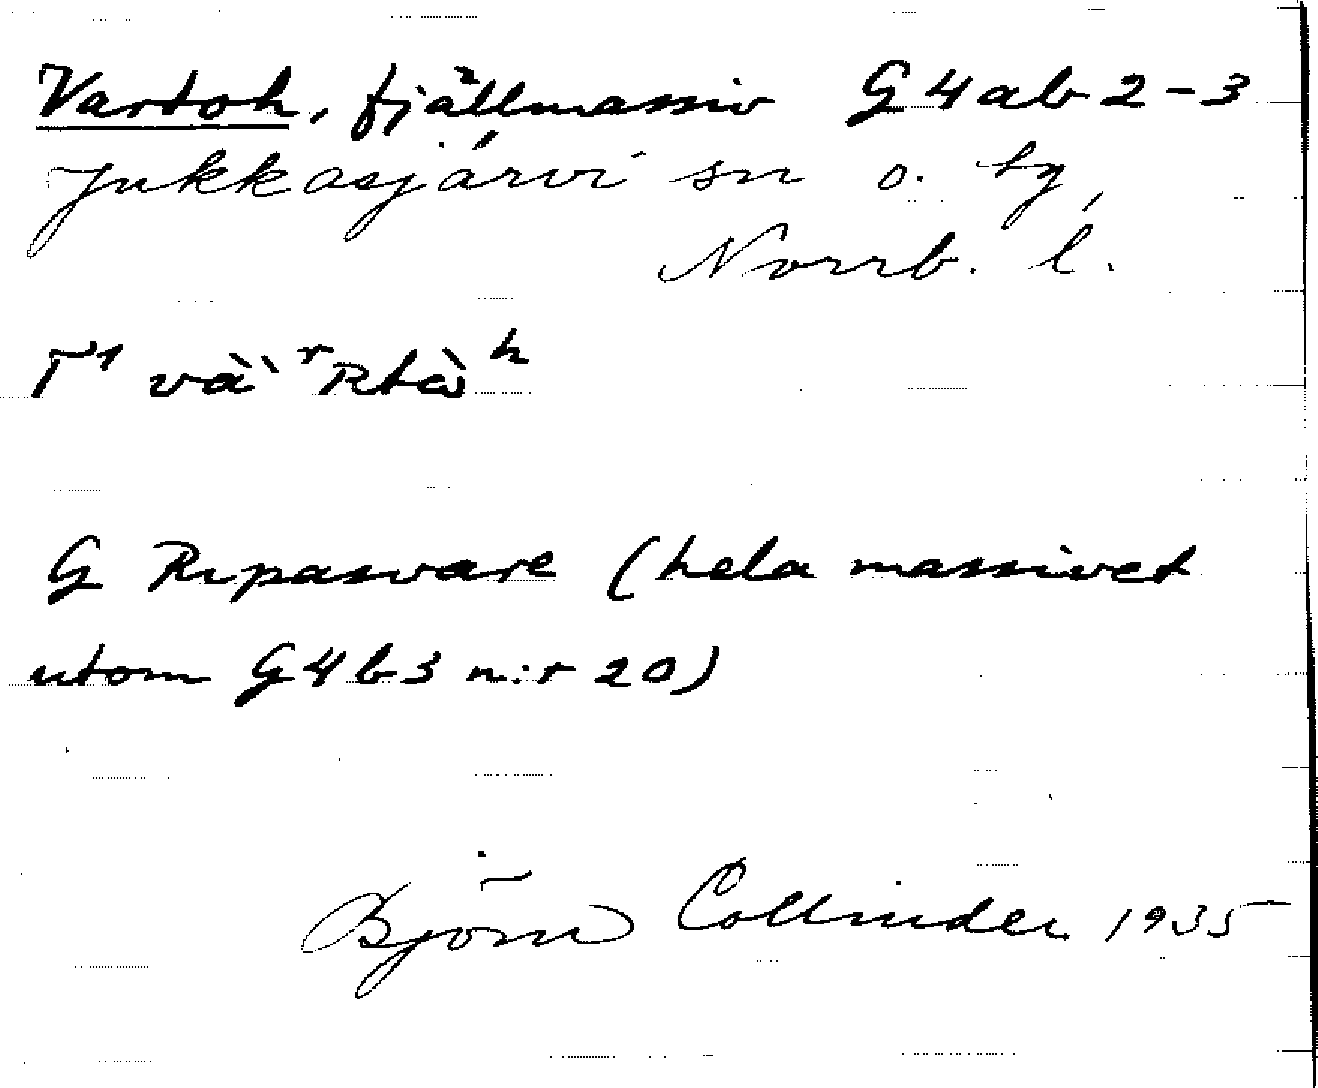 Vartoh, fjällmassiv G4ab2-3
Jukkasjärvi sn o. tg
Norrb. l.
T¹ và̀ ʳRtàʰ
G Ripasvare (hela massivet
utom G4b3 n:r 20)
Björn Collinder 1935